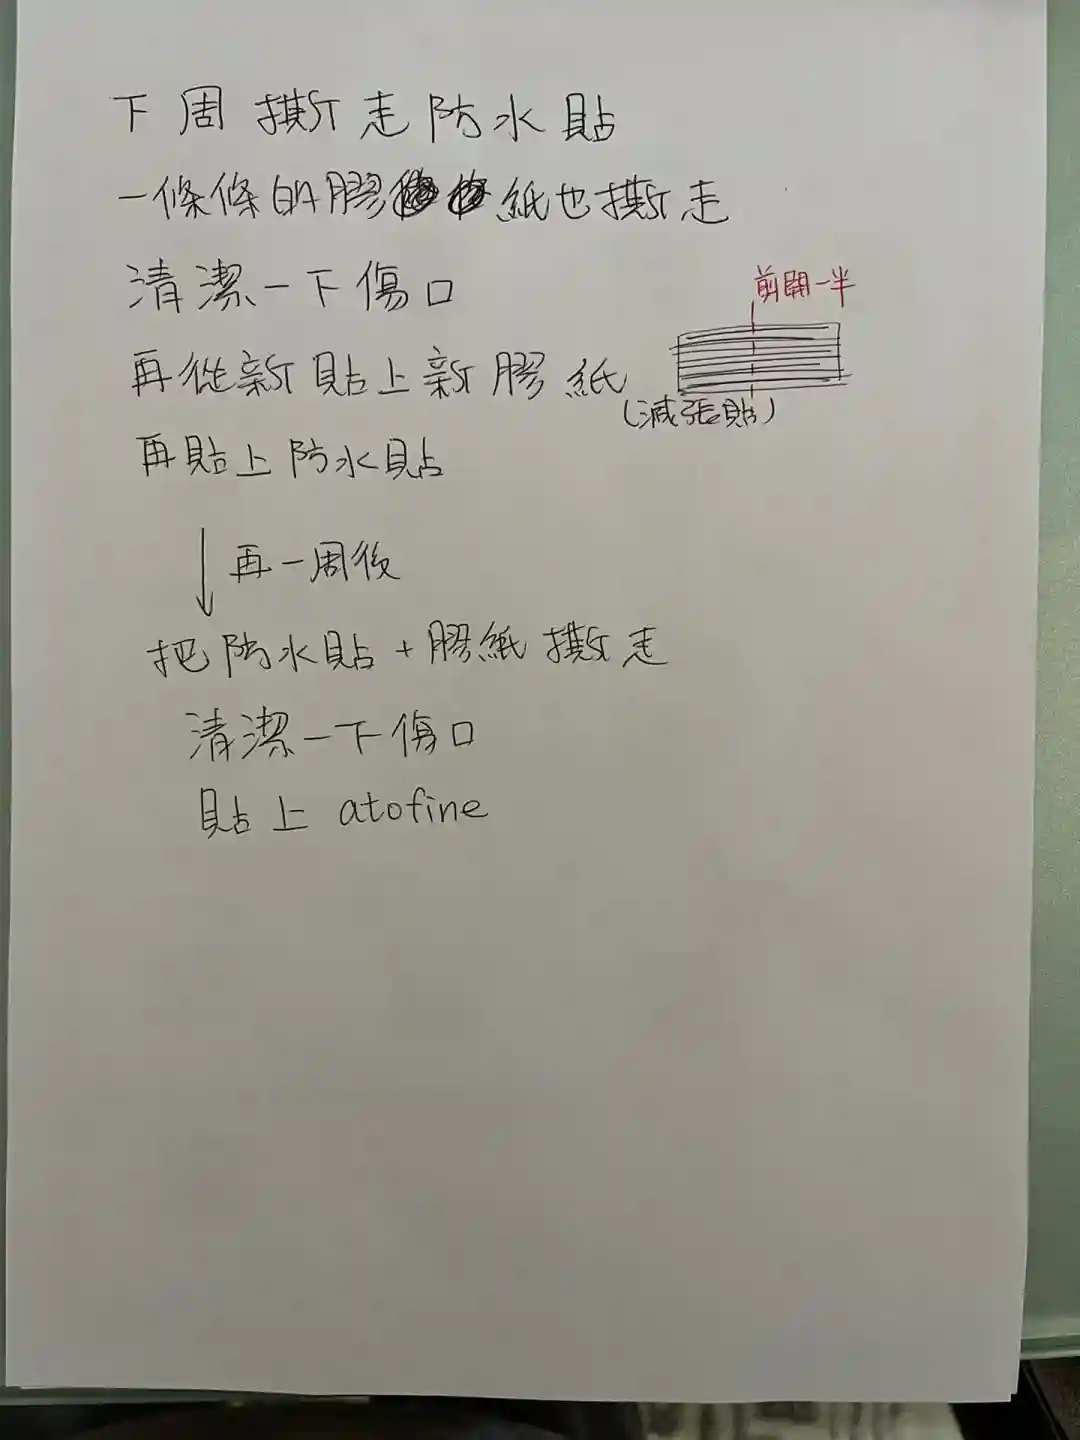 下周撕走防水貼
一條條的膠紙也撕走
清潔一下傷口
剪開一半
再從新貼上新膠紙
(減張貼)
再貼上防水貼
↓再一周後
把防水貼+膠紙撕走
清潔一下傷口
貼上 atofine